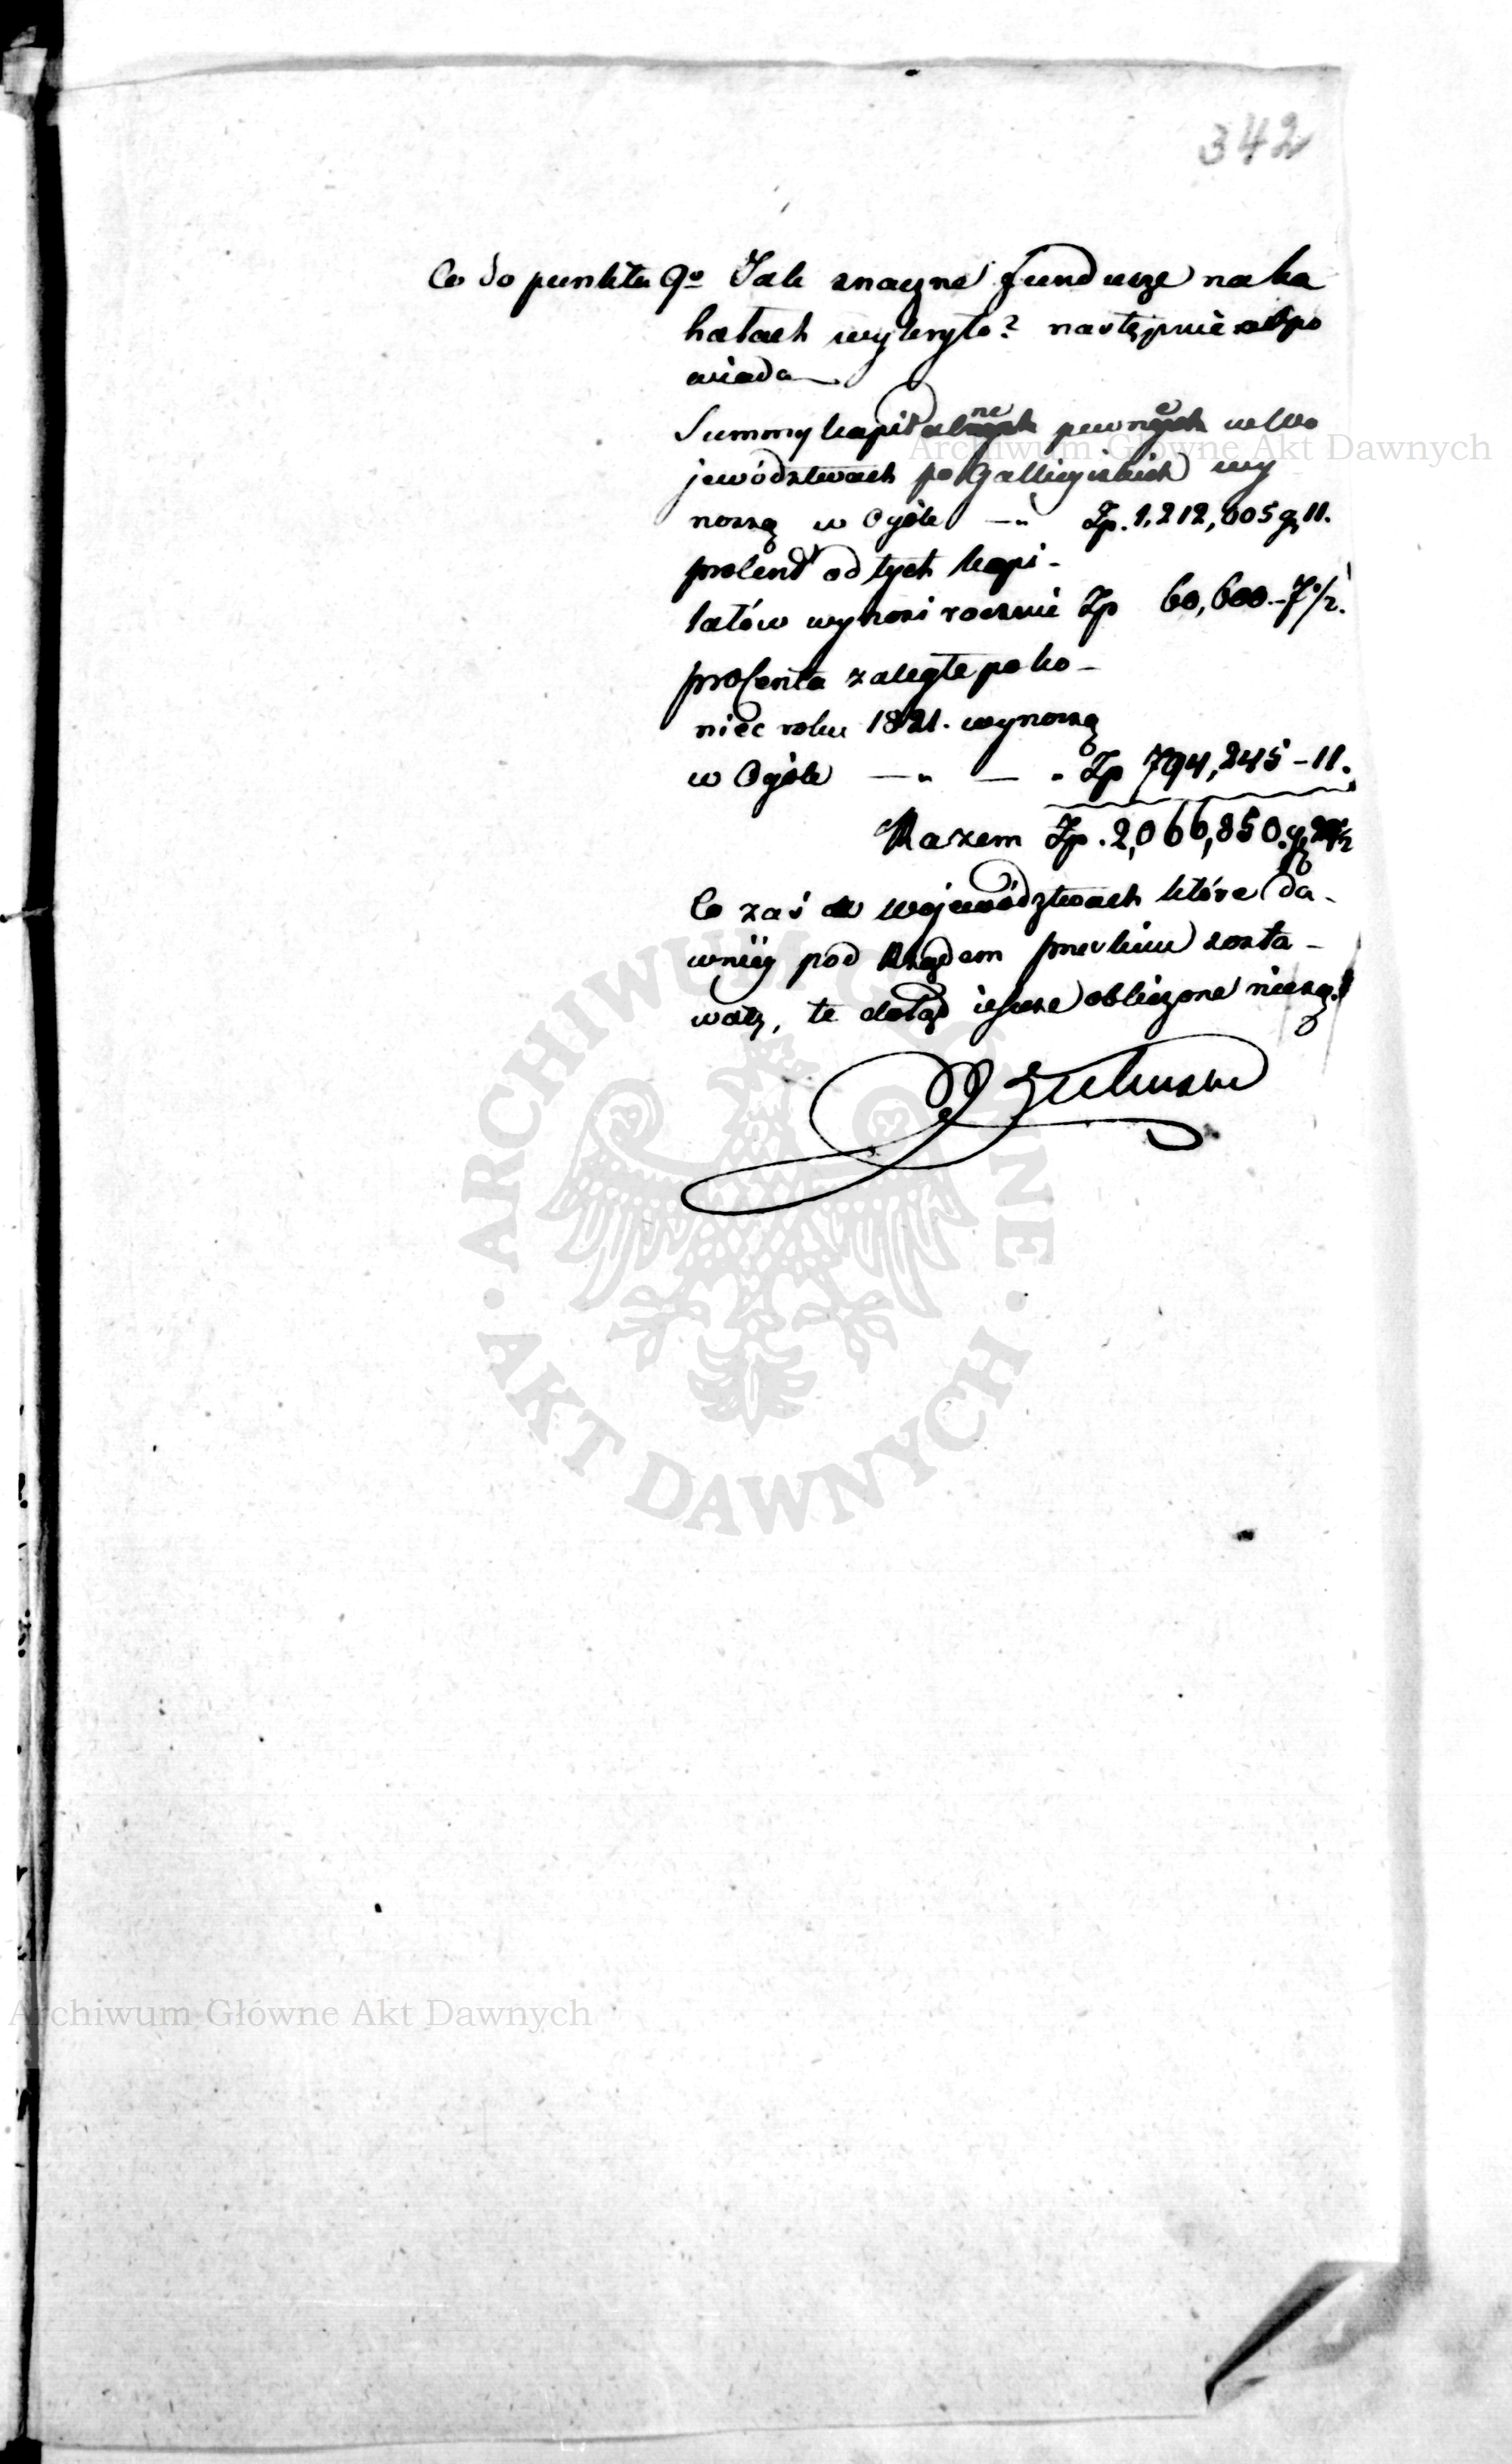 342
Co do punktu 9º Jak znaczne fundusze na ka
hałach wykryto? następnie odpo
wiada
Summy kapitalne pewne w Wo
jewództwach poGallicyiskich wy
noszą w Ogóle —„ Zp. 1,212,005 g 11.
procent od tych kapi-
tałów wynosi rocznie Zp 60,600.-7 1/2.
procenta zaległe po ko-
niec roku 1821. wynoszą
w Ogóle —„ — „ Zp 794,245-11.
Razem Zp. 2,066,850. g
Co zaś w województwach które da-
wniéy pod Rządem pruskim zosta-
wały, te dotąd ieszcze obliczone nie są.
Archiwum Główne Akt Dawnych
ARCHIWUM GŁÓWNE
· AKT DAWNYCH ·
Archiwum Główne Akt Dawnych